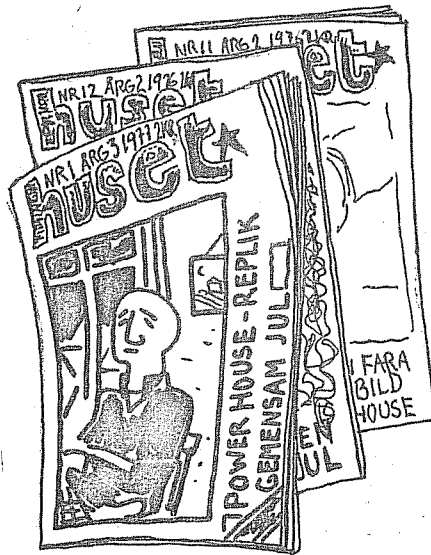 NR 11 ÅRG 2 1976 2KR
set
NR 12 ÅRG 2 1976
huset
NR 1 ÅRG 3 1977 2KR
huset
POWER HOUSE-REPLIK
GEMENSAM JUL
JUL
I FARA
BILD
HOUSE